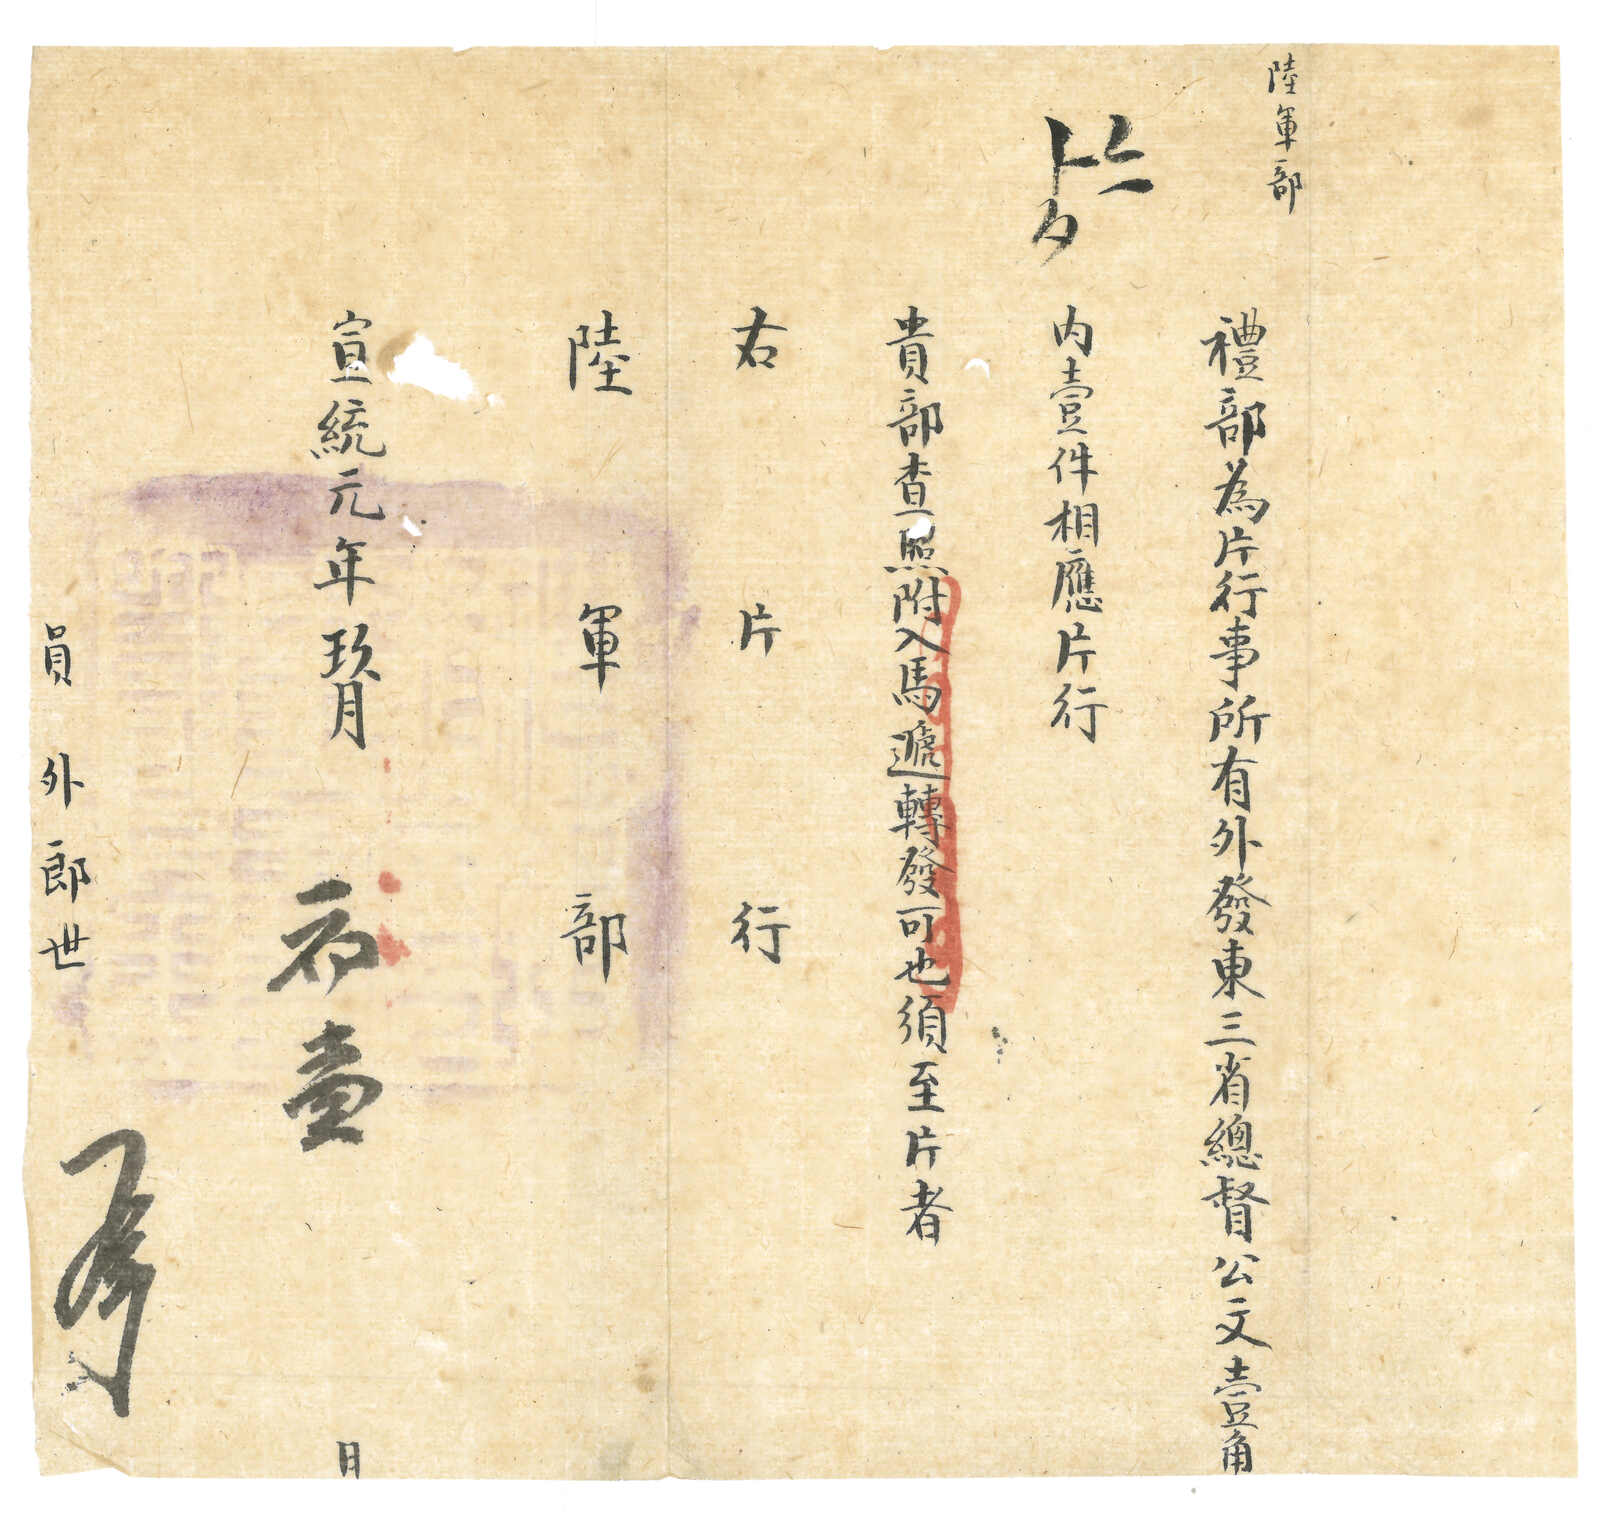 陸軍部
禮部為片行事所有外發東三省總督公文壹角
内壹件相應片行
貴部查照附入馬遞轉發可也須至片者
右片行
陸軍部
宣統元年玖月初壹日
員外郎世